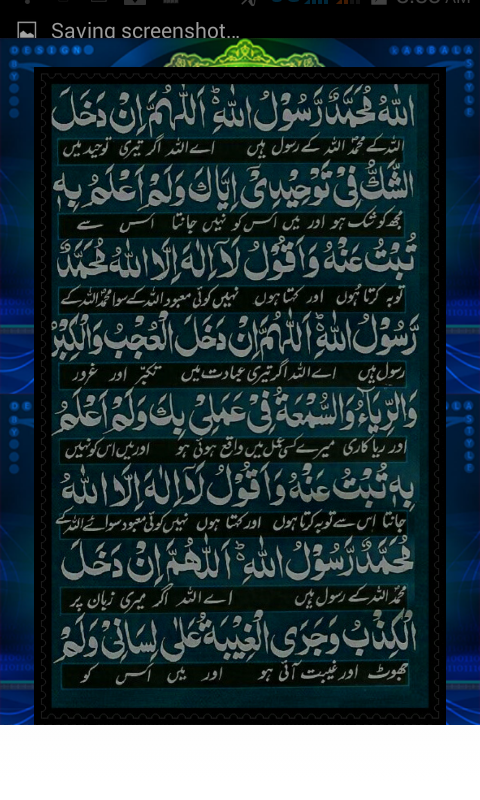 Saving screenshot...
DESIGN
اللهُ مُحَمَّدٌ رَّسُوْلُ اللهِ ؕ اَللّٰهُمَّ اِنْ دَخَلَ
اللہ کے محمدؐ اللہ کے رسول ہیں اے اللہ اگر تیری توحید میں
الشَّكُّ فِىْ تَوْحِيْدِىْ اِيَّاكَ وَلَمْ اَعْلَمُ بِهٖ
مجھ کو شک ہو اور میں اس کو نہیں جانتا اس سے
تُبْتُ عَنْهُ وَاَقُوْلُ لَاۤ اِلٰهَ اِلَّا اللهُ مُحَمَّدٌ
توبہ کرتا ہوں اور کہتا ہوں نہیں کوئی معبود اللہ کے سوا محمدؐ اللہ کے
رَّسُوْلُ اللهِ ؕ اَللّٰهُمَّ اِنْ دَخَلَ الْعُجْبُ وَالْكِبْرُ
رسول ہیں اے اللہ اگر تیری عبادت میں تکبّر اور غرور
وَالرِّيَآءُ وَالسُّمْعَةُ فِىْ عَمَلِىْ بِكَ وَلَمْ اَعْلَمُ
اور ریا کاری میرے کسی عمل میں واقع ہوئی ہو اور میں اس کو نہیں
بِهٖ تُبْتُ عَنْهُ وَاَقُوْلُ لَاۤ اِلٰهَ اِلَّا اللهُ
جانتا اس سے توبہ کرتا ہوں اور کہتا ہوں نہیں کوئی معبود سوائے اللہ کے
مُحَمَّدٌ رَّسُوْلُ اللهِ ؕ اَللّٰهُمَّ اِنْ دَخَلَ
محمدؐ اللہ کے رسول ہیں اے اللہ اگر میری زبان پر
الْكِذْبُ وَجَرَى الْغِيْبَةُ عَلٰى لِسَانِىْ وَلَمْ
جھوٹ اور غیبت آئی ہو اور میں اس کو